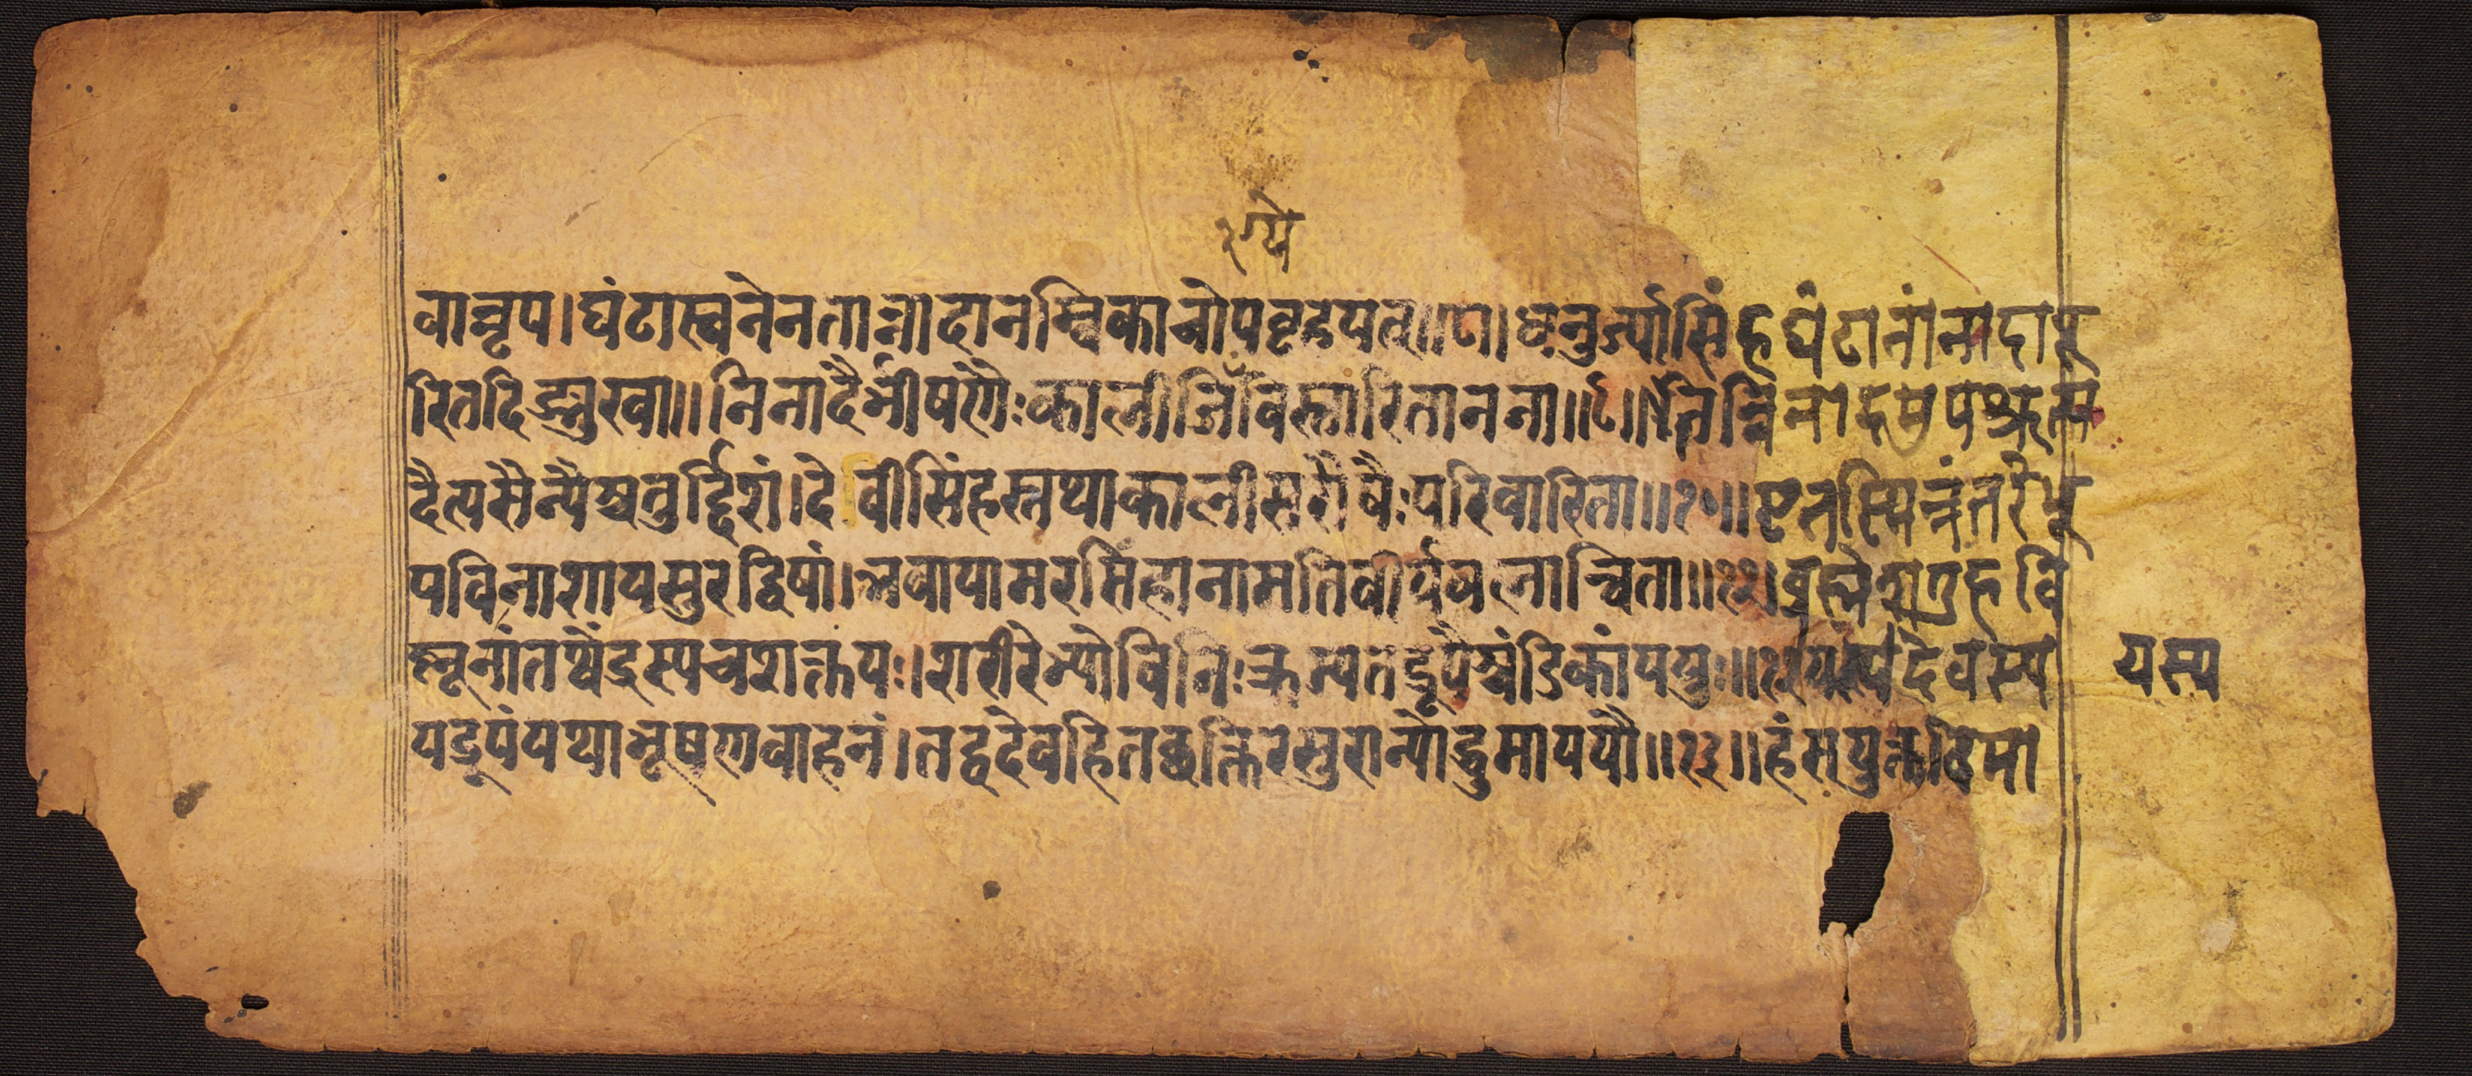 ग्ये
वान्नृप।घंटास्वनेनतान्नादानम्बिकाचोपवृहयत्॥८॥धनुर्ज्यासिंहघंटानांनादापू
रितदिङ्मुखा॥निनादैर्भीषणैःकालीजिँविस्तारितानना॥९॥तन्निनादमुपश्रुत्य
दैत्यसैन्यैश्चतुर्द्दिशं।देवीसिंहस्तथाकालीसरोषैःपरिवारिता॥१०॥एतस्मिन्नंतरेभू
पविनाशायसुरद्विषां।भवायामरसिंहानामतिवीर्यवलान्विता॥११॥ब्रह्मेशगुहवि
ष्णूनांतथेंद्रस्यचशक्तयः।शरीरेभ्योविनिःक्रम्यतद्रूपैश्चंडिकांययुः॥१२॥यस्यदेवस्य
यस्य
यद्रूपंयथाभूषणवाहनं।तद्वदेवहितछक्तिरसुरान्योद्धुमाययौ॥१३॥हंसयुक्तविमा